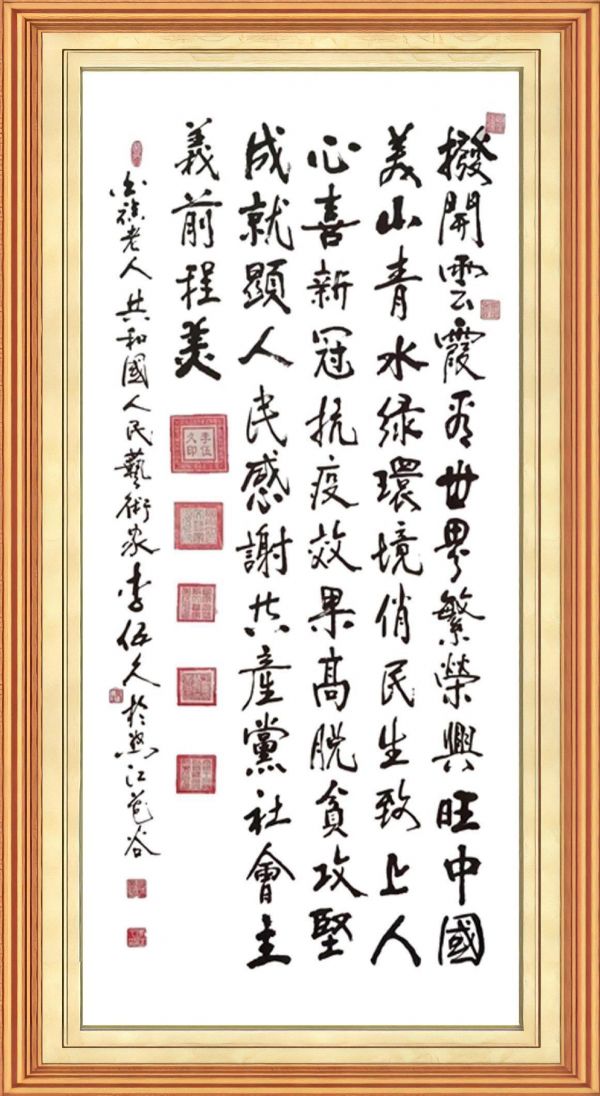 撥開雲霞看世界繁榮興旺中國
美山青水绿環境俏民生致上人
心喜新冠抗疫效果高脱貧攻堅
成就顯人民感謝共產黨社會主
義前程美
李伍久印
老人共和國人民藝術家李伍久於怒江谷